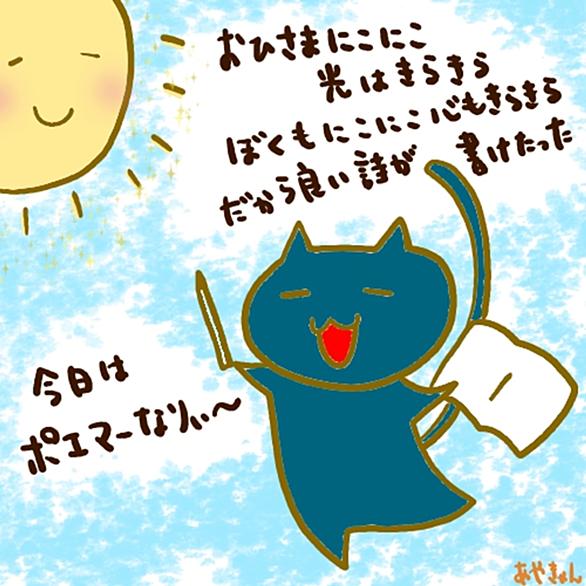 おひさまにこにこ
光はきらきら
ぼくもにこにこ心もきらきら
だから良い詩が書けたった
今日は
ポエマーなりぃ〜
あやきょん